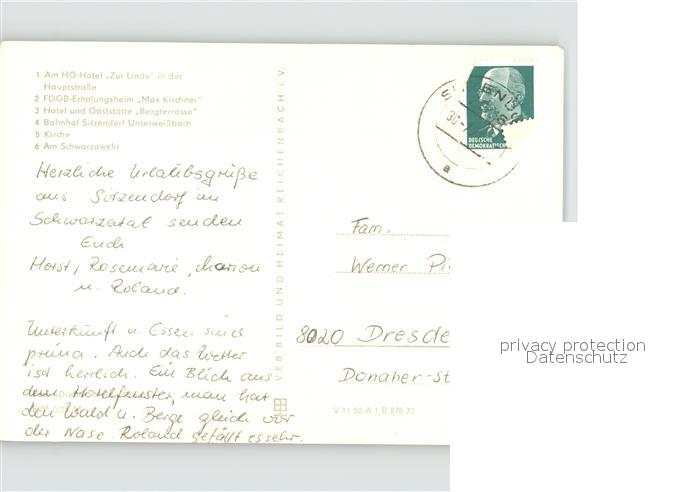 1 Am HO-Hotel „Zur Linde" in der
Hauptstraße
2 FDGB-Erholungsheim „Max Kirchner"
3 Hotel und Gaststätte „Bergterrasse"
4 Bahnhof Sitzendorf-Unterweißbach
5 Kirche
6 Am Schwarzawehr
Herzliche Urlaubsgrüße
aus Sitzendorf im
Schwarzatal senden
Euch
Horst, Rosemarie, Marion
u. Roland.
Unterkunft u. Essen sind
prima. Auch das Wetter
ist herrlich. Ein Blick aus
dem Hotelfenster, man hat
den Wald u. Berge gleich vor
der Nase. Roland gefällt es sehr.
VEB BILD UND HEIMAT REICHENBACH i. V.
DEUTSCHE
DEMOKRATISCH
a
Fam.
Werner
8020 Dresde
Donaher-St
V 11 50 A 1 B 878 70
privacy protection
Datenschutz